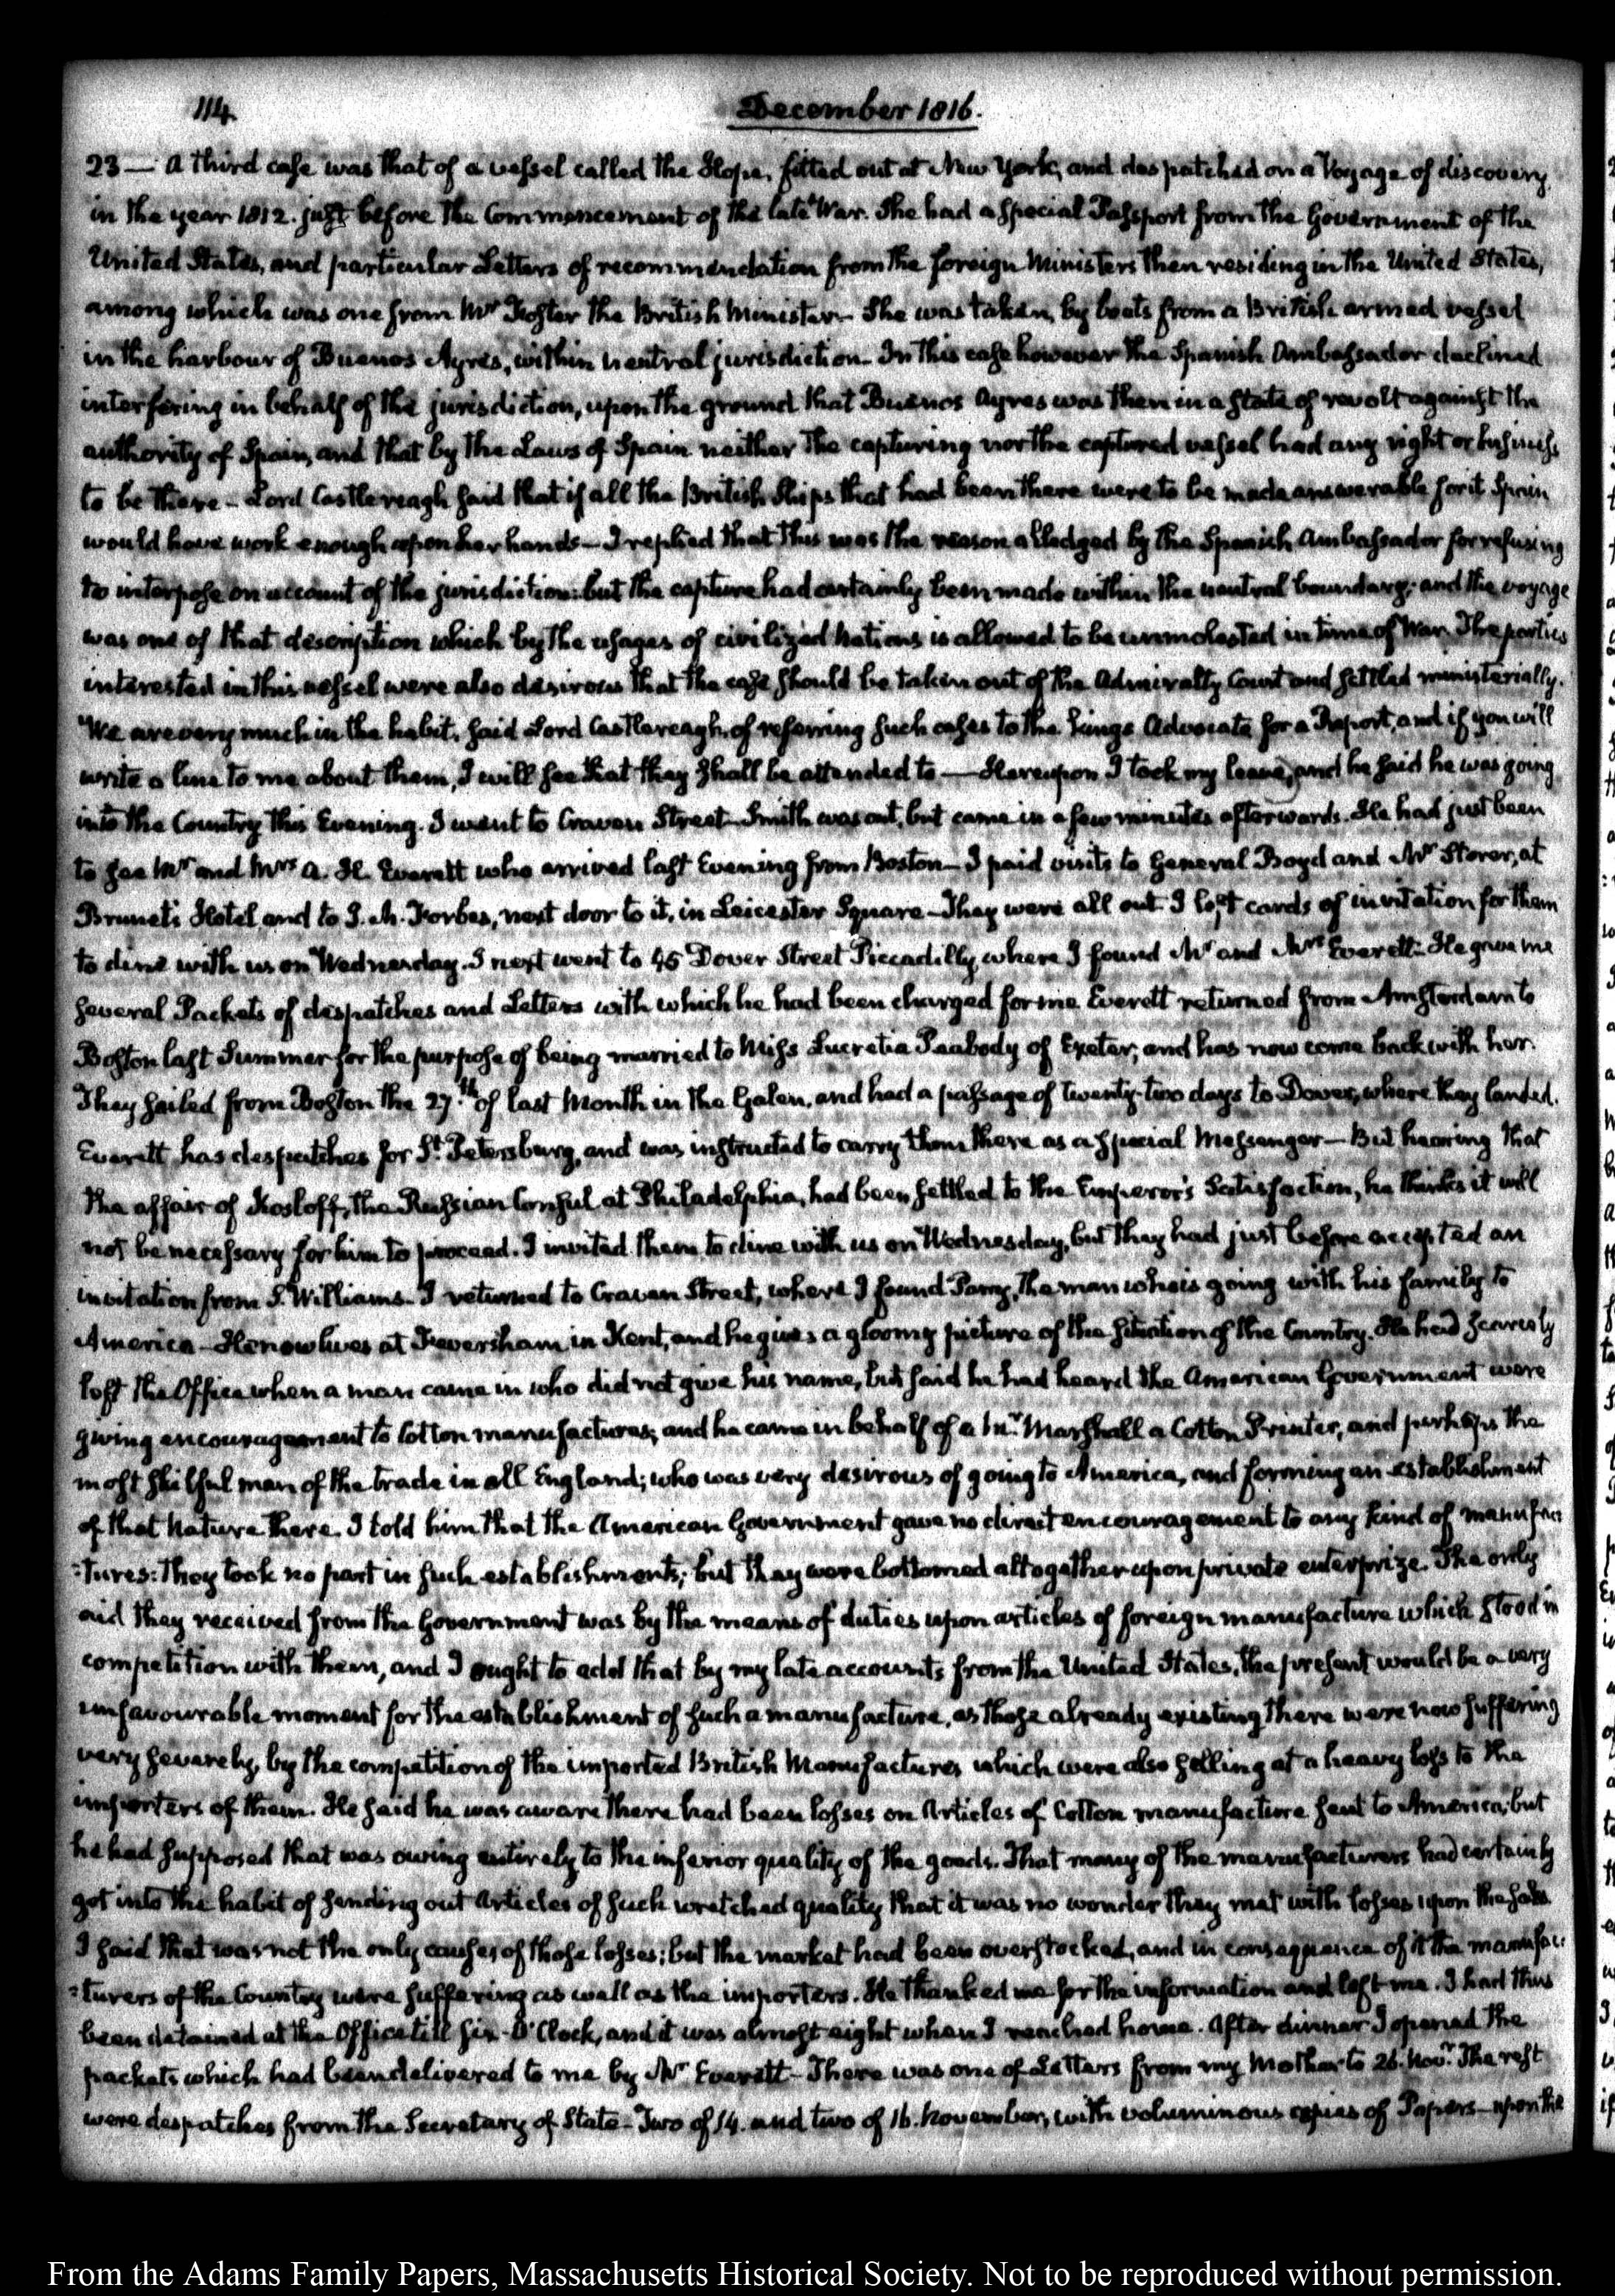 114
December 1816.
23 — A third case was that of a vessel called the Hope, fitted out at New York, and despatched on a Voyage of discovery,
in the year 1812. just before the Commencement of the late War. She had a special Passport from the Government of the
United States, and particular Letters of recommendation from the foreign Ministers then residing in the United States,
among which was one from Mr. Foster the British Minister— She was taken, by boats from a British armed vessel
in the harbour of Buenos Ayres, within neutral jurisdiction— In this case however the Spanish Ambassador declined
interfering in behalf of the jurisdiction, upon the ground that Buenos Ayres was then in a state of revolt against the
authority of Spain, and that by the Laws of Spain neither the capturing nor the captured vessel had any right or business
to be there— Lord Castlereagh said that if all the British Ships that had been there were to be made answerable for it Spain
would have work enough upon her hands— I replied that this was the reason alledged by the Spanish Ambassador for refusing
to interpose on account of the jurisdiction: but the capture had certainly been made within the neutral boundary; and the voyage
was one of that description which by the usages of civilized Nations is allowed to be unmolested in time of War. The parties
interested in this vessel were also desirous that the case should be taken out of the Admiralty Court and settled ministerially.
"We are very much in the habit, said Lord Castlereagh, of referring such cases to the Kings Advocate for a Report, and if you will
write a line to me about them, I will see that they shall be attended to— Hereupon I took my leave, and he said he was going
into the Country this Evening. I went to Craven Street— Smith was out, but came in a few minutes afterwards. He had just been
to see Mr. and Mrs. A. H. Everett who arrived last Evening from Boston— I paid visits to General Boyd and Mr. Storer, at
Brunet's Hotel, and to J. M. Forbes, next door to it, in Leicester Square— They were all out. I left cards of invitation for them
to dine with us on Wednesday. I next went to 45 Dover Street Piccadilly, where I found Mr. and Mrs. Everett— He gave me
several Packets of despatches and Letters with which he had been charged for me. Everett returned from Amsterdam to
Boston last Summer for the purpose of being married to Miss Lucretia Peabody of Exeter, and has now come back with her.
They sailed from Boston the 27.th of last Month in the Galen, and had a passage of twenty-two days to Dover, where they landed.
Everett has despatches for St. Petersburg, and was instructed to carry them there as a special Messenger— But hearing that
the affair of Kosloff, the Russian Consul at Philadelphia, had been settled to the Emperor's Satisfaction, he thinks it will
not be necessary for him to proceed. I invited them to dine with us on Wednesday, but they had just before accepted an
invitation from S. Williams— I returned to Craven Street, where I found Parry, the man who is going with his family to
America— He now lives at Feversham in Kent, and he gives a gloomy picture of the situation of the Country. He had scarcely
left the Office when a man came in who did not give his name, but said he had heard the American Government were
giving encouragement to Cotton manufactures; and he came in behalf of a Mr. Marshall a Cotton Printer, and perhaps the
most skilful man of the trade in all England; who was very desirous of going to America, and forming an establishment
of that Nature there. I told him that the American Government gave no direct encouragement to any kind of manufac
:tures: they took no part in such establishments; but they were bottomed altogether upon private enterprize. The only
aid they received from the Government was by the means of duties upon articles of foreign manufacture which stood in
competition with them, and I ought to add that by my late accounts from the United States, the present would be a very
unfavourable moment for the establishment of such a manufacture, as those already existing there were now suffering
very severely, by the competition of the imported British Manufactures which were also selling at a heavy loss to the
importers of them. He said he was aware there had been losses on Articles of Cotton manufacture sent to America; but
he had supposed that was owing entirely to the inferior quality of the goods. That many of the manufacturers had certainly
got into the habit of sending out Articles of such wretched quality that it was no wonder they met with losses upon the sale.
I said that was not the only causes of those losses; but the market had been overstocked, and in consequence of it the manufac:
:turers of the Country were suffering as well as the importers. He thanked me for the information and left me. I had thus
been detained at the Office till six O'Clock, and it was almost eight when I reached home. After dinner I opened the
packets which had been delivered to me by Mr. Everett— There was one of Letters from my Mother to 26. Novr. The rest
were despatches from the Secretary of State— Two of 14. and two of 16. November, with voluminous copies of Papers— upon the
From the Adams Family Papers, Massachusetts Historical Society. Not to be reproduced without permission.